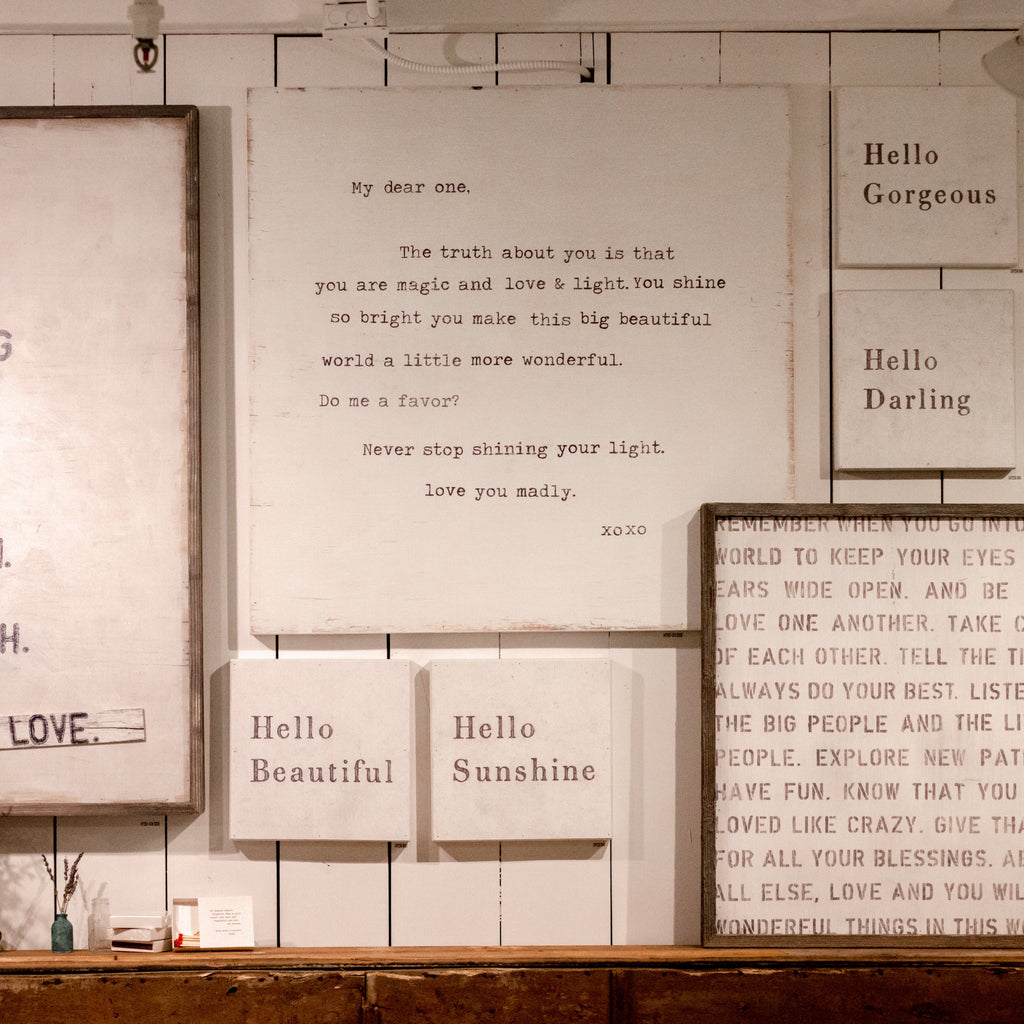 G
H.
LOVE.
My dear one,
The truth about you is that
you are magic and love & light. You shine
so bright you make this big beautiful
world a little more wonderful.
Do me a favor?
Never stop shining your light.
love you madly.
xoxo
Hello
Gorgeous
Hello
Darling
Hello
Beautiful
Hello
Sunshine
REMEMBER WHEN YOU GO INTO
WORLD TO KEEP YOUR EYES
EARS WIDE OPEN. AND BE
LOVE ONE ANOTHER. TAKE C
OF EACH OTHER. TELL THE
ALWAYS DO YOUR BEST. LISTE
THE BIG PEOPLE AND THE LI
PEOPLE. EXPLORE NEW PAT
HAVE FUN. KNOW THAT YOU
LOVED LIKE CRAZY. GIVE THA
FOR ALL YOUR BLESSINGS.
ALL ELSE, LOVE AND YOU WIL
WONDERFUL THINGS IN THIS W